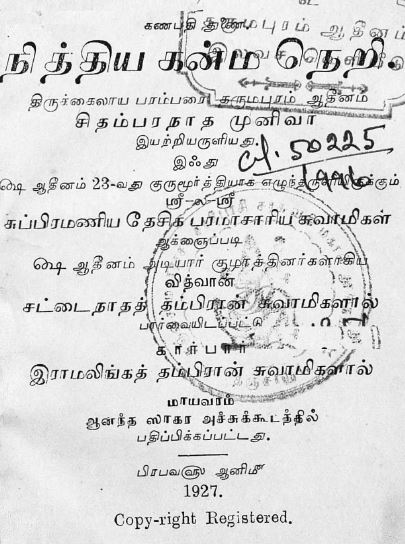 கணபதி துணை.
நித்திய கன்ம நெறி.
திருக்கைலாய பரம்பரை தருமபுரம் ஆதீனம்
சிதம்பரநாத முனிவர்
இயற்றியருளியது.
இஃது
௸ ஆதீனம் 23-வது குருமூர்த்தியாக எழுந்தருளியிருக்கும்
ஸ்ரீ-ல-ஸ்ரீ
சுப்பிரமணிய தேசிக பரமாசாரிய சுவாமிகள்
ஆக்ஞைப்படி
௸ ஆதீனம் அடியார் குழாத்தினர்களாகிய
வித்வான்
சட்டைநாதத் தம்பிரான் சுவாமிகளால்
பார்வையிடப்பட்டு
கார்பார்
இராமலிங்கத் தம்பிரான் சுவாமிகளால்
மாயவரம்
ஆனந்த ஸாகர அச்சுக்கூடத்தில்
பதிப்பிக்கப்பட்டது.
பிரபவ௵ ஆனி௴
1927.
Copy-right Registered.
தருமபுரம் ஆதீனம்
50225